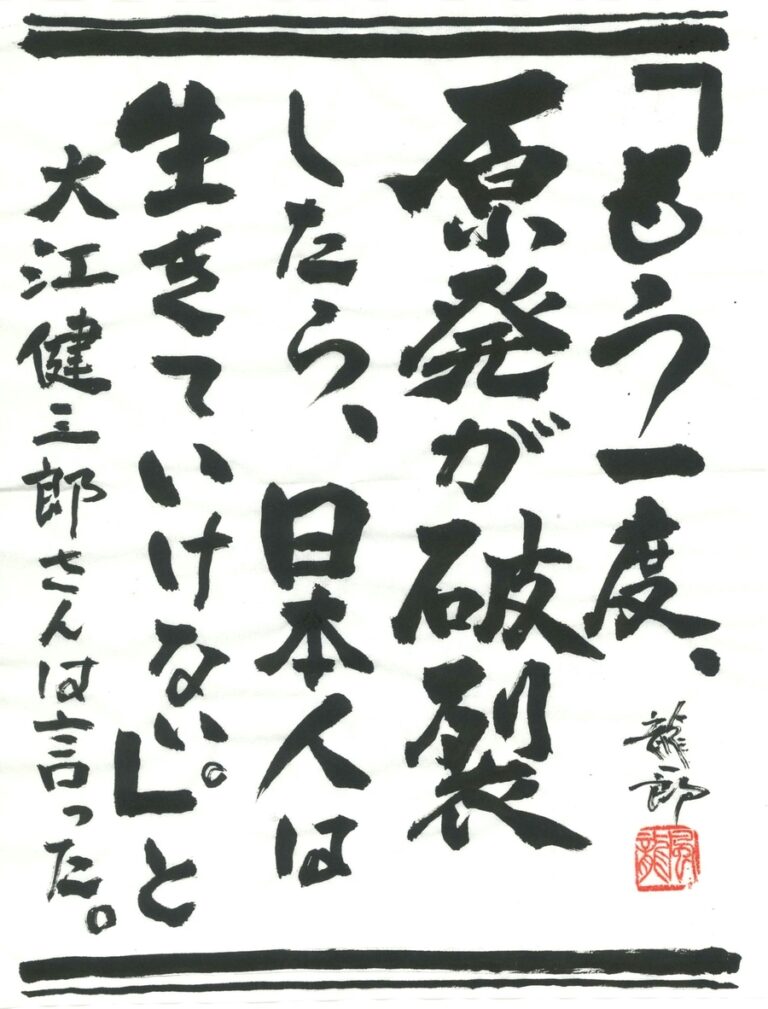 「もう一度、
原発が破裂
したら、日本人は
生きていけない。」と
大江健三郎さんは言った。
龍一郎